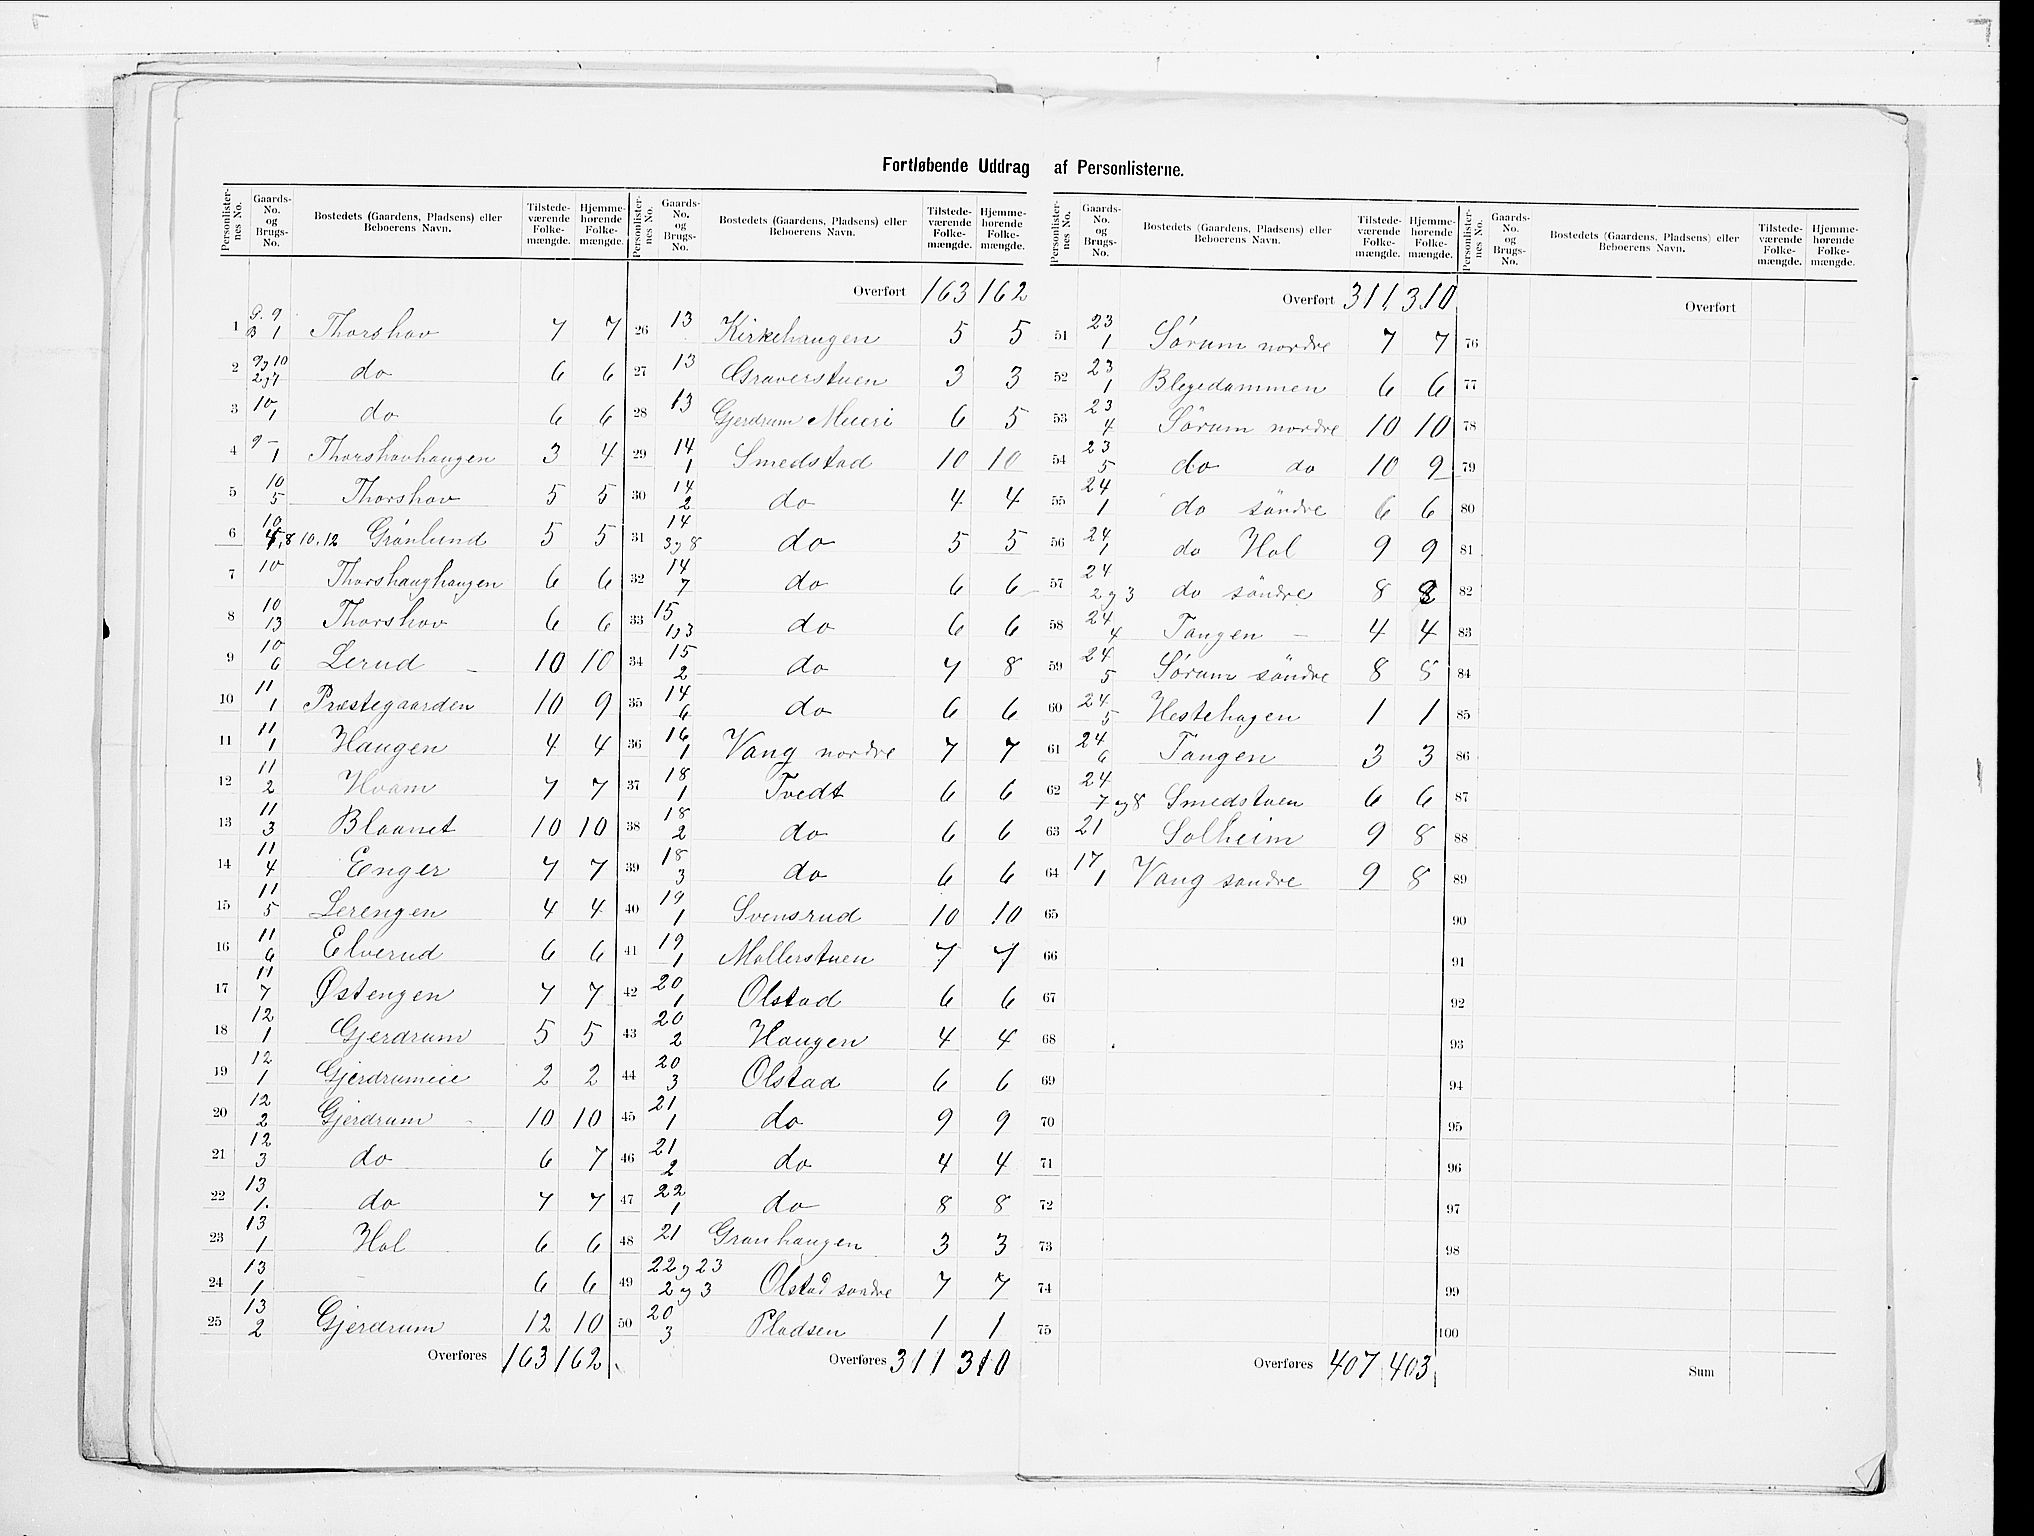 Fortløbende Uddrag af Personlisterne.
Personlister-nes No. Gaards-No. og Brugs-No. Bostedets (Gaardens, Pladsens) eller Beboerens Navn. Tilstede-værende Folke-mængde. Hjemme-hørende Folke-mængde.
1 G. 9 B 1 Thorshov 7 7
2 9 og 10 2 og 7 do 6 6
3 10 1 do 6 6
4 9 – 1 Thorshovhaugen 3 4
5 10 5 Thorshov 5 5
6 10 8 10.12 Grønlund 5 5
7 10 Thorshaughaugen 6 6
8 10 13 Thorshov 6 6
9 10 6 Lerud 10 10
10 11 1 Præstegaarden 10 9
11 11 1 Haugen 4 4
12 11 2 Hvam 7 7
13 11 3 Blaanet 10 10
14 11 4 Enger 7 7
15 11 5 Lerengen 4 4
16 11 6 Elverud 6 6
17 11 7 Østengen 7 7
18 12 1 Gjerdrum 5 5
19 12 1 Gjerdrumeie 2 2
20 12 2 Gjerdrum 10 10
21 12 3 do 6 7
22 13 1. do 7 7
23 13 1 Hol 6 6
24 13 1 – 6 6
25 13 2 Gjerdrum 12 10
Overføres 163 162
Personlister-nes No. Gaards-No. og Brugs-No. Bostedets (Gaardens, Pladsens) eller Beboerens Navn. Tilstede-værende Folke-mængde. Hjemme-hørende Folke-mængde.
Overført 163 162
26 13 Kirkehaugen 5 5
27 13 Graverstuen 3 3
28 13 Gjerdrum Meieri 6 5
29 14 1 Smedstad 10 10
30 14 2 do 4 4
31 14 3 og 8 do 5 5
32 14 7 do 6 6
33 15 1 og 3 do 6 6
34 15 2 do 7 8
35 14 6 do 6 6
36 16 1 Vang nordre 7 7
37 18 1 Tvedt 6 6
38 18 2 do 6 6
39 18 3 do 6 6
40 19 1 Svensrud 10 10
41 19 1 Møllerstuen 7 7
42 20 1 Olstad 6 6
43 20 2 Haugen 4 4
44 20 3 Olstad 6 6
45 21 1 do 9 9
46 21 2 do 4 4
47 22 1 do 8 8
48 21 Granhaugen 3 3
49 22 og 23 2 og 3 Olstad søndre 7 7
50 20 3 Pladsen 1 1
Overføres 311 310
Personlister-nes No. Gaards-No. og Brugs-No. Bostedets (Gaardens, Pladsens) eller Beboerens Navn. Tilstede-værende Folke-mængde. Hjemme-hørende Folke-mængde.
Overført 311 310
51 23 1 Sørum nordre 7 7
52 23 1 Blegedammen 6 6
53 23 4 Sørum nordre 10 10
54 23 5 do do 10 9
55 24 1 do söndre 6 6
56 24 1 do Hol 9 9
57 24 2 og 3 do söndre 8 8
58 24 4 Tangen – 4 4
59 24 5 Sørum söndre 8 8
60 24 5 Hestehagen 1 1
61 24 6 Tangen 3 3
62 24 7 og 8 Smedstuen 6 6
63 21 Solheim 9 8
64 17 1 Vang søndre 9 8
65
66
67
68
69
70
71
72
73
74
75
Overføres 407 403
Personlister-nes No. Gaards-No. og Brugs-No. Bostedets (Gaardens, Pladsens) eller Beboerens Navn. Tilstede-værende Folke-mængde. Hjemme-hørende Folke-mængde.
Overført
76
77
78
79
80
81
82
83
84
85
86
87
88
89
90
91
92
93
94
95
96
97
98
99
100
Sum